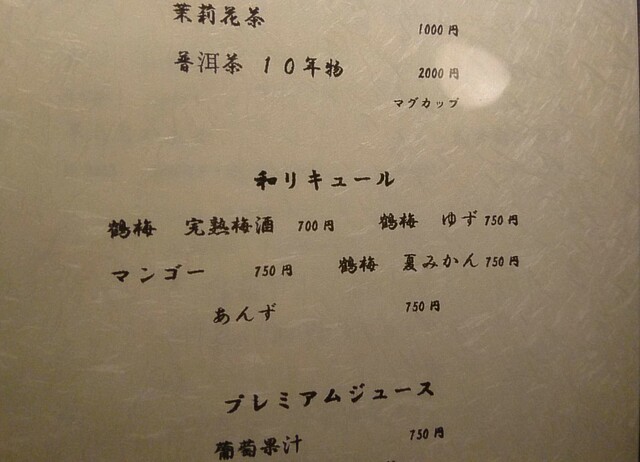 茉莉花茶 1000円
普洱茶 10年物 2000円
マグカップ
和リキュール
鶴梅 完熟梅酒 700円 鶴梅 ゆず 750円
マンゴー 750円 鶴梅 夏みかん 750円
あんず 750円
プレミアムジュース
葡萄果汁 750円